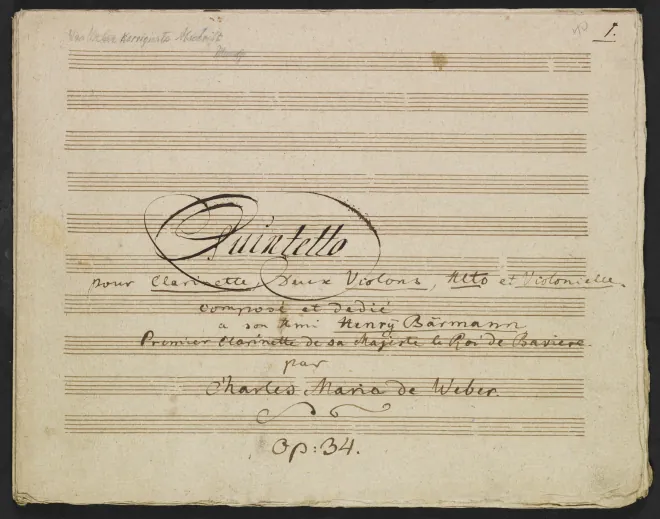 Von Weber
1.
Quintetto
pour Clarinette, Deux Violons, Alto et Violoncelle.
composé et dedié
a son Ami Henrÿ Bärmann
Premier Clarinette de sa Majeste le Roi de Baviere.
par
Charles Maria de Weber.
Op: 34.